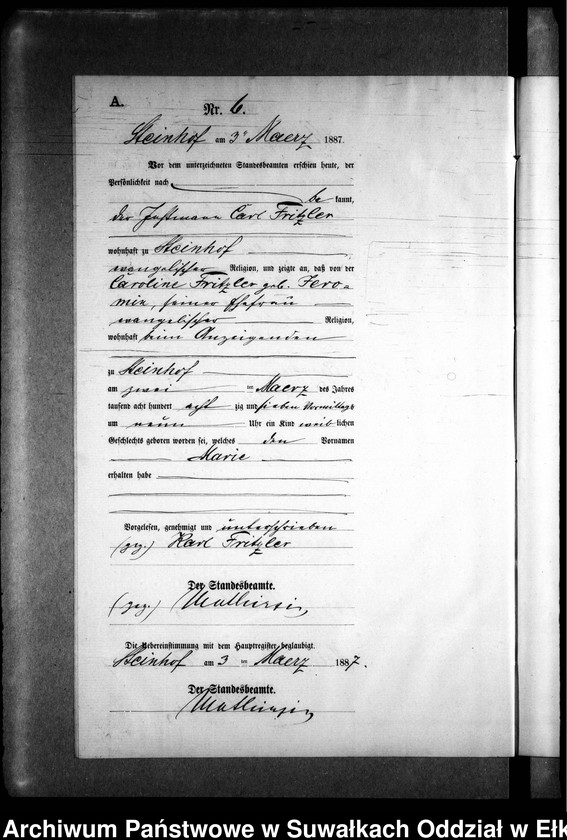 A.
Nr. 6.
Steinhof am 3ten Maerz 1887.
Vor dem unterzeichneten Standesbeamten erschien heute, der
Persönlichkeit nach
be kannt,
der Instmann Carl Fritzler
wohnhaft zu Steinhof
evangelischer Religion, und zeigte an, daß von der
Caroline Fritzler geb. Jero-
min, seiner Ehefrau
evangelischer Religion,
wohnhaft beim Anzeigenden
zu Steinhof
am zwei ten Maerz des Jahres
tausend acht hundert acht zig und sieben Vormittags
um neun Uhr ein Kind weib lichen
Geschlechts geboren worden sei, welches den Vornamen
Marie
erhalten habe
Vorgelesen, genehmigt und unterschrieben
(gez.) Karl Fritzler
Der Standesbeamte.
(gez.)
Die Uebereinstimmung mit dem Hauptregister beglaubigt.
Steinhof am 3 ten Maerz 1887.
Der Standesbeamte.
Archiwum Państwowe w Suwałkach Oddział w Ełk